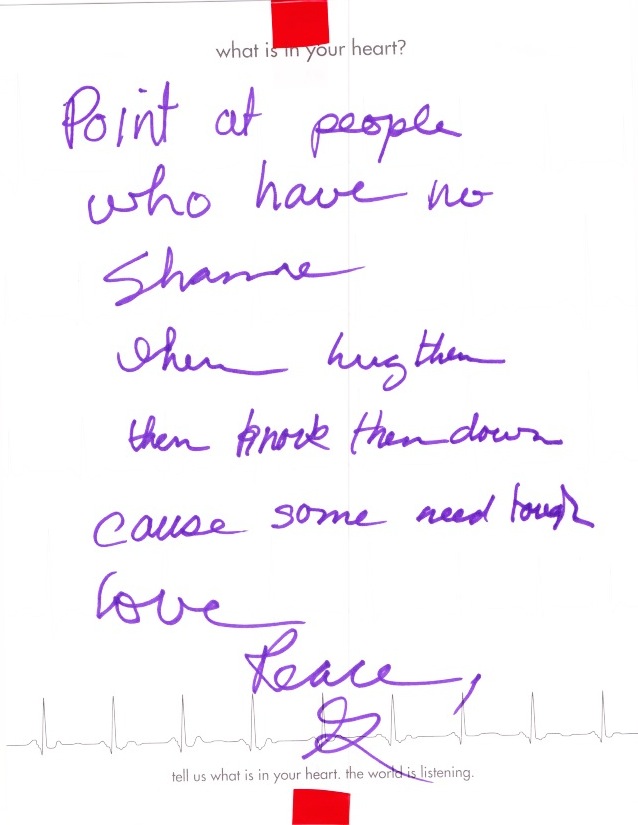 what is in your heart?
Point at people
who have no
Shame
then hug them
then knock them down
cause some need tough
love
Peace,
tell us what is in your heart. the world is listening.